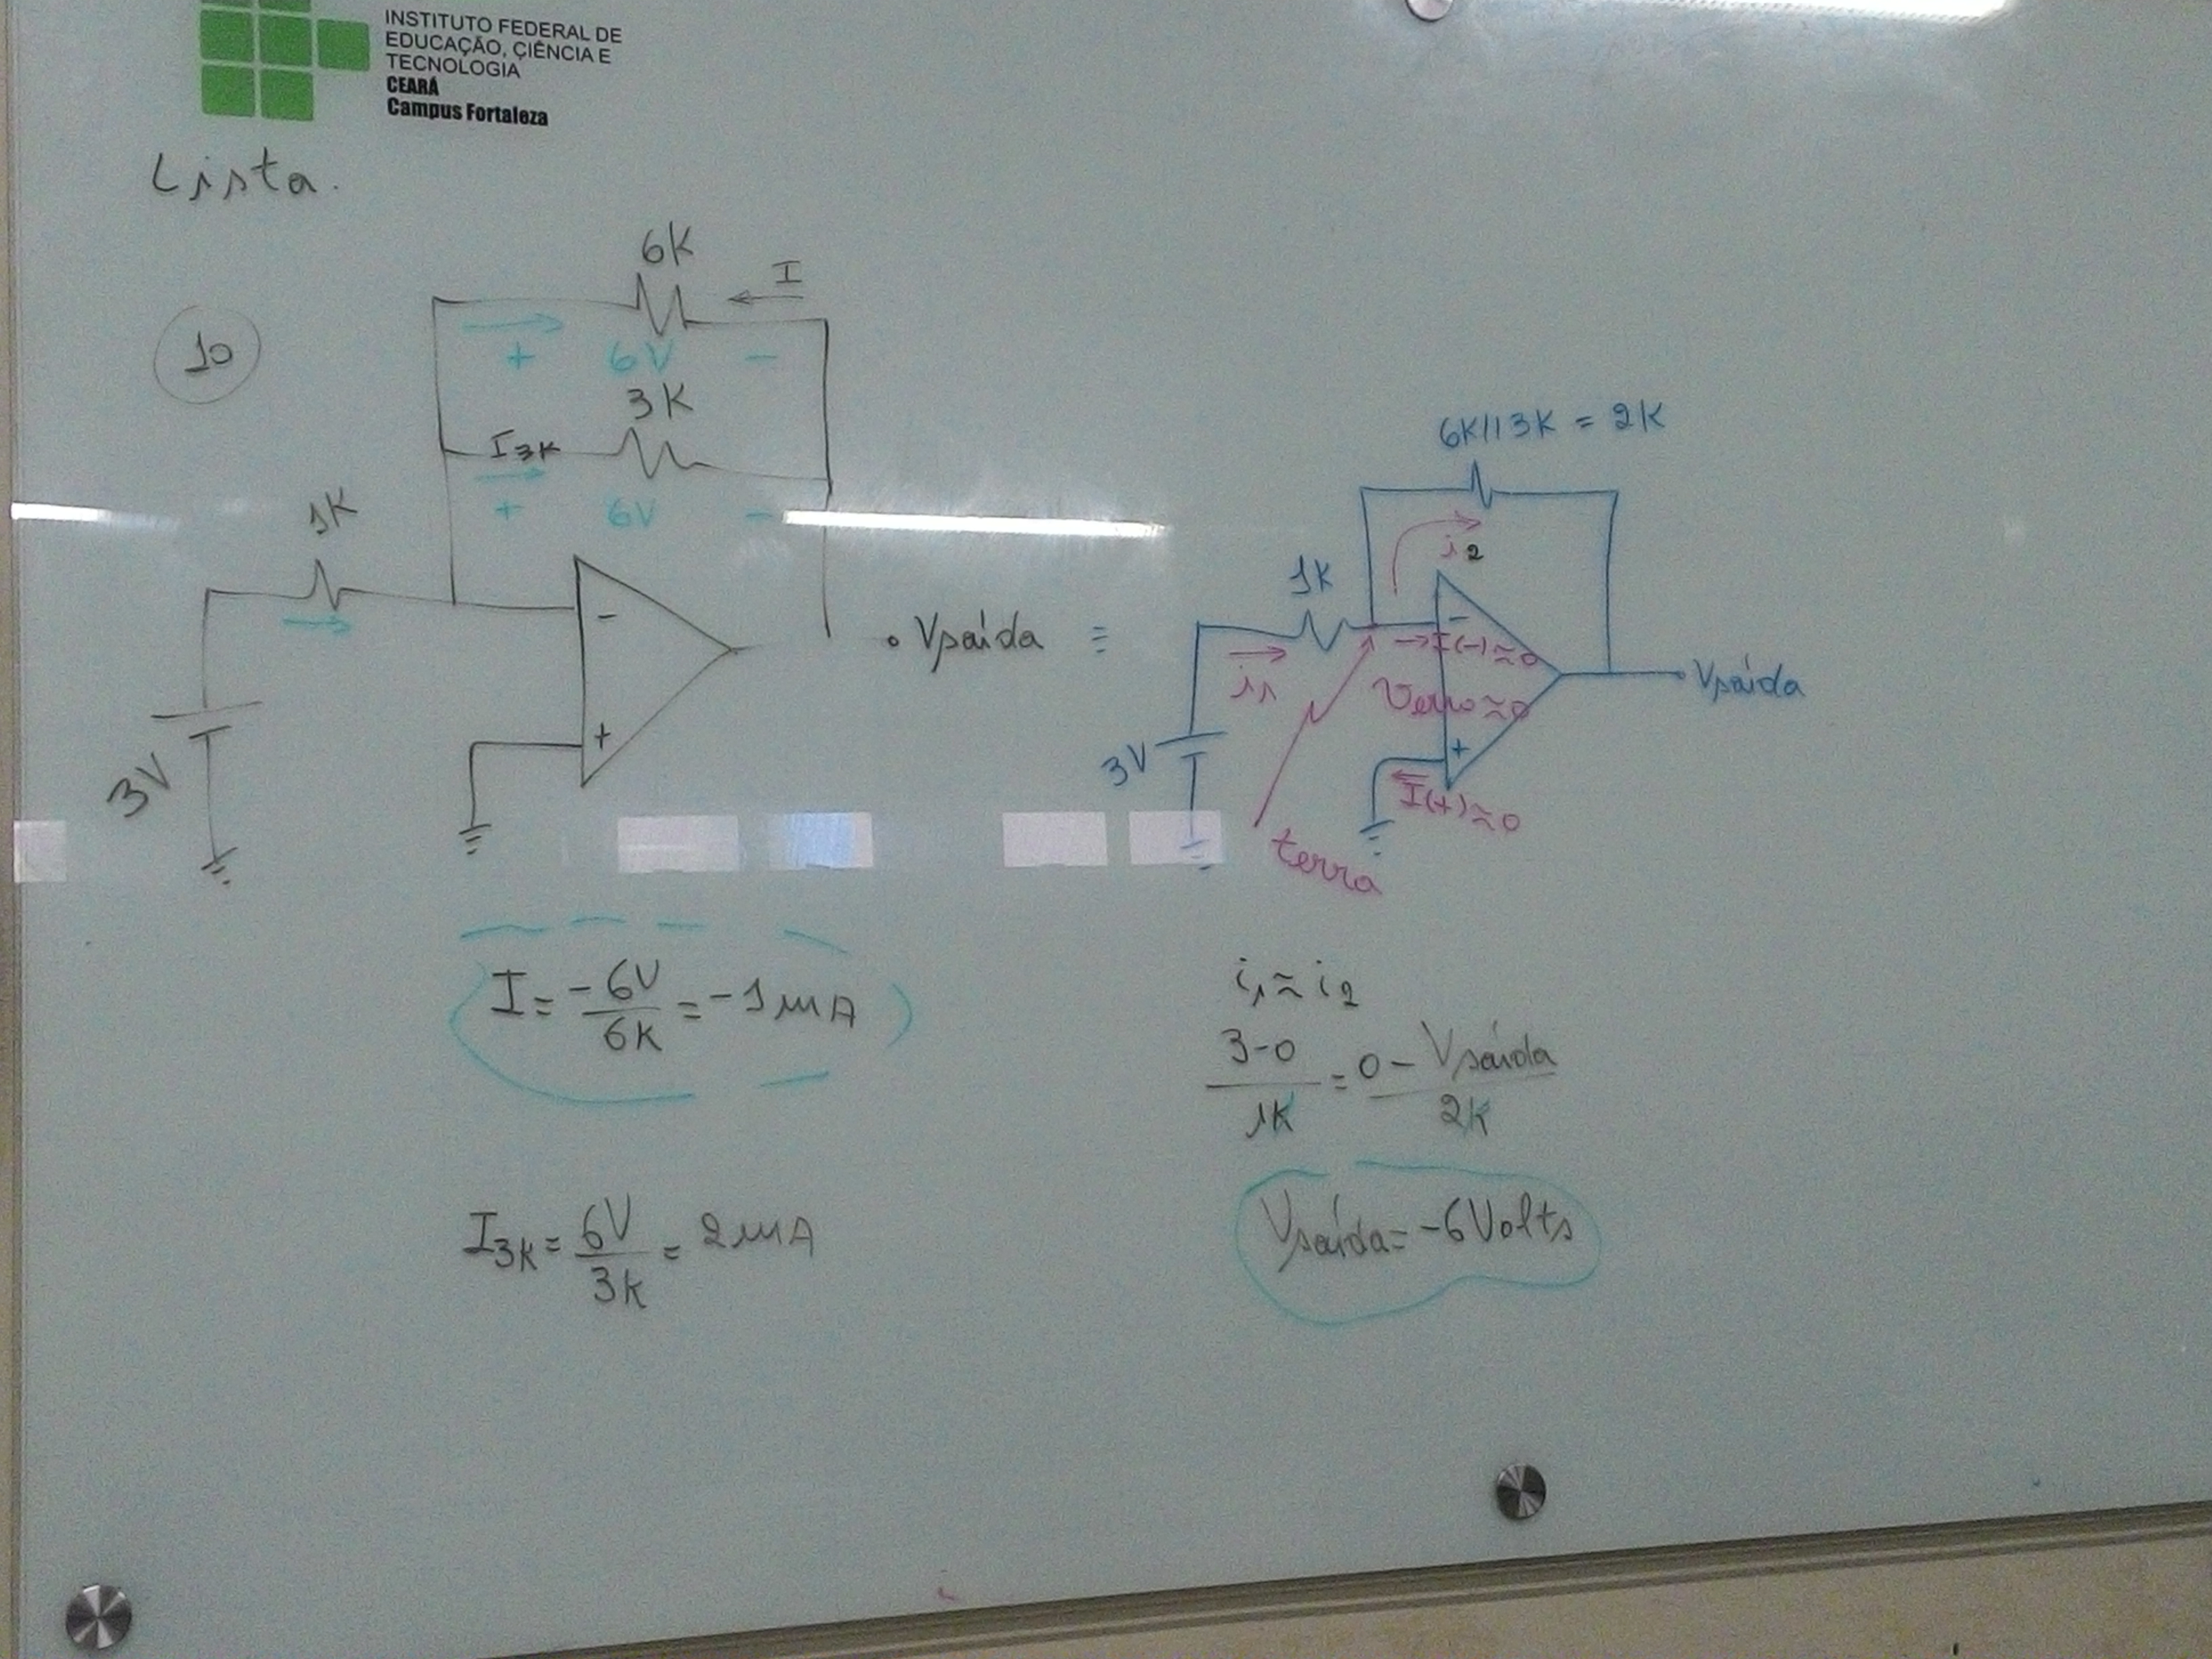 INSTITUTO FEDERAL DE
EDUCAÇÃO, CIÊNCIA E
TECNOLOGIA
CEARÁ
Campus Fortaleza
Lista.
10
6K
I
+ 6V -
3K
I3K
+ 6V -
1K
-
+
3V
Vsaída ≡
6K//3K = 2K
i2
1K
i1
-
→ I(-) ≈ 0
Verro ≈ 0
+
I(+) ≈ 0
3V
terra
Vsaída
I = -6V/6K = -1mA
I3K = 6V/3K = 2mA
i1 ≈ i2
3-0/1K = 0-Vsaída/2K
Vsaída = -6Volts